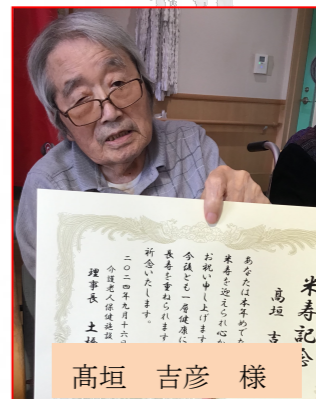 米寿記念
髙垣 吉
あなたは本年めでた
米寿を迎えられ心か
お祝い申し上げます
今後とも一層健康に
長寿を重ねられます
祈念いたします。
二〇二四年九月十六日
介護老人保健施設
理事長 土
髙垣 吉彦 様